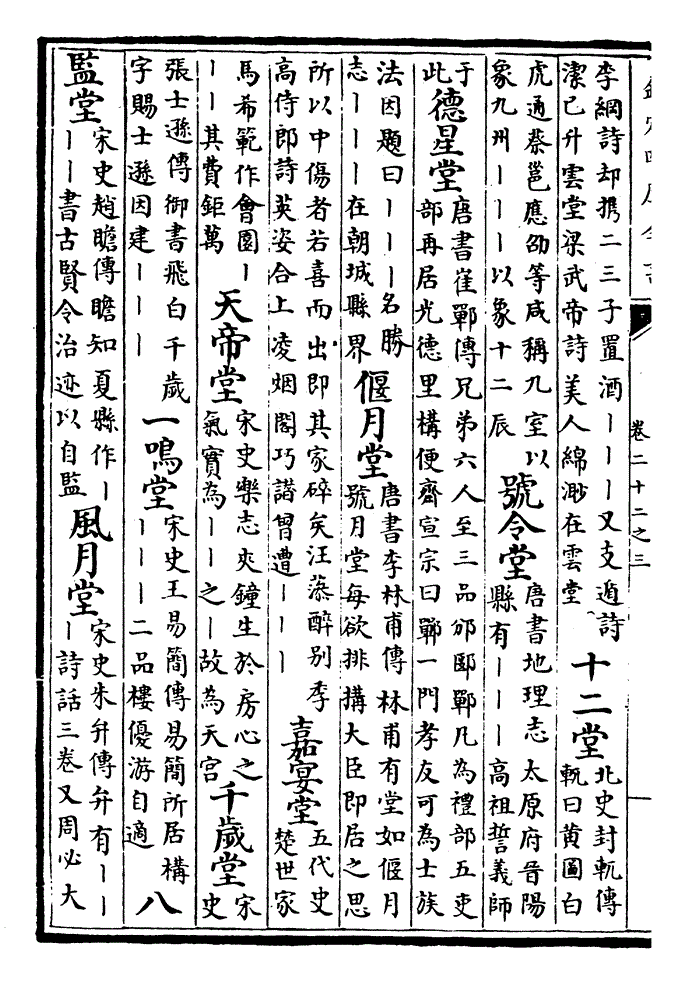 欽定四庫全書
卷二十二之三
李綱詩却攜二三子置酒丨丨丨又支遁詩
潔己升雲堂梁武帝詩美人綿渺在雲堂
十二堂
北史封軌傳
軌曰黃圖白
虎通蔡邕應劭等咸稱九室以
象九州丨丨丨以象十二辰
號令堂
唐書地理志太原府晉陽
縣有丨丨丨高祖誓義師
于
此
德星堂
唐書崔鄲傳兄弟六人至三品邠郾鄲凡為禮部五吏
部再居光德里構便齋宣宗曰鄲一門孝友可為士族
法因題曰丨丨丨名勝
志丨丨丨在朝城縣界
偃月堂
唐書李林甫傳林甫有堂如偃月
號月堂每欲排搆大臣即居之思
所以中傷者若喜而出即其家碎矣汪藻醉别季
高侍郎詩英姿合上凌烟閣巧譖曾遭丨丨丨
嘉宴堂
五代史
楚世家
馬希範作會園丨
丨丨其費鉅萬
天帝堂
宋史樂志夾鐘生於房心之
氣實為丨丨之丨故為天宮
千歲堂
宋
史
張士遜傳御書飛白千歲
字賜士遜因建丨丨丨
一鳴堂
宋史王易簡傳易簡所居構
丨丨丨二品樓優游自適
八
監堂
宋史趙瞻傳瞻知夏縣作丨
丨丨書古賢令治迹以自監
風月堂
宋史朱弁傳弁有丨丨
丨詩話三卷又周必大